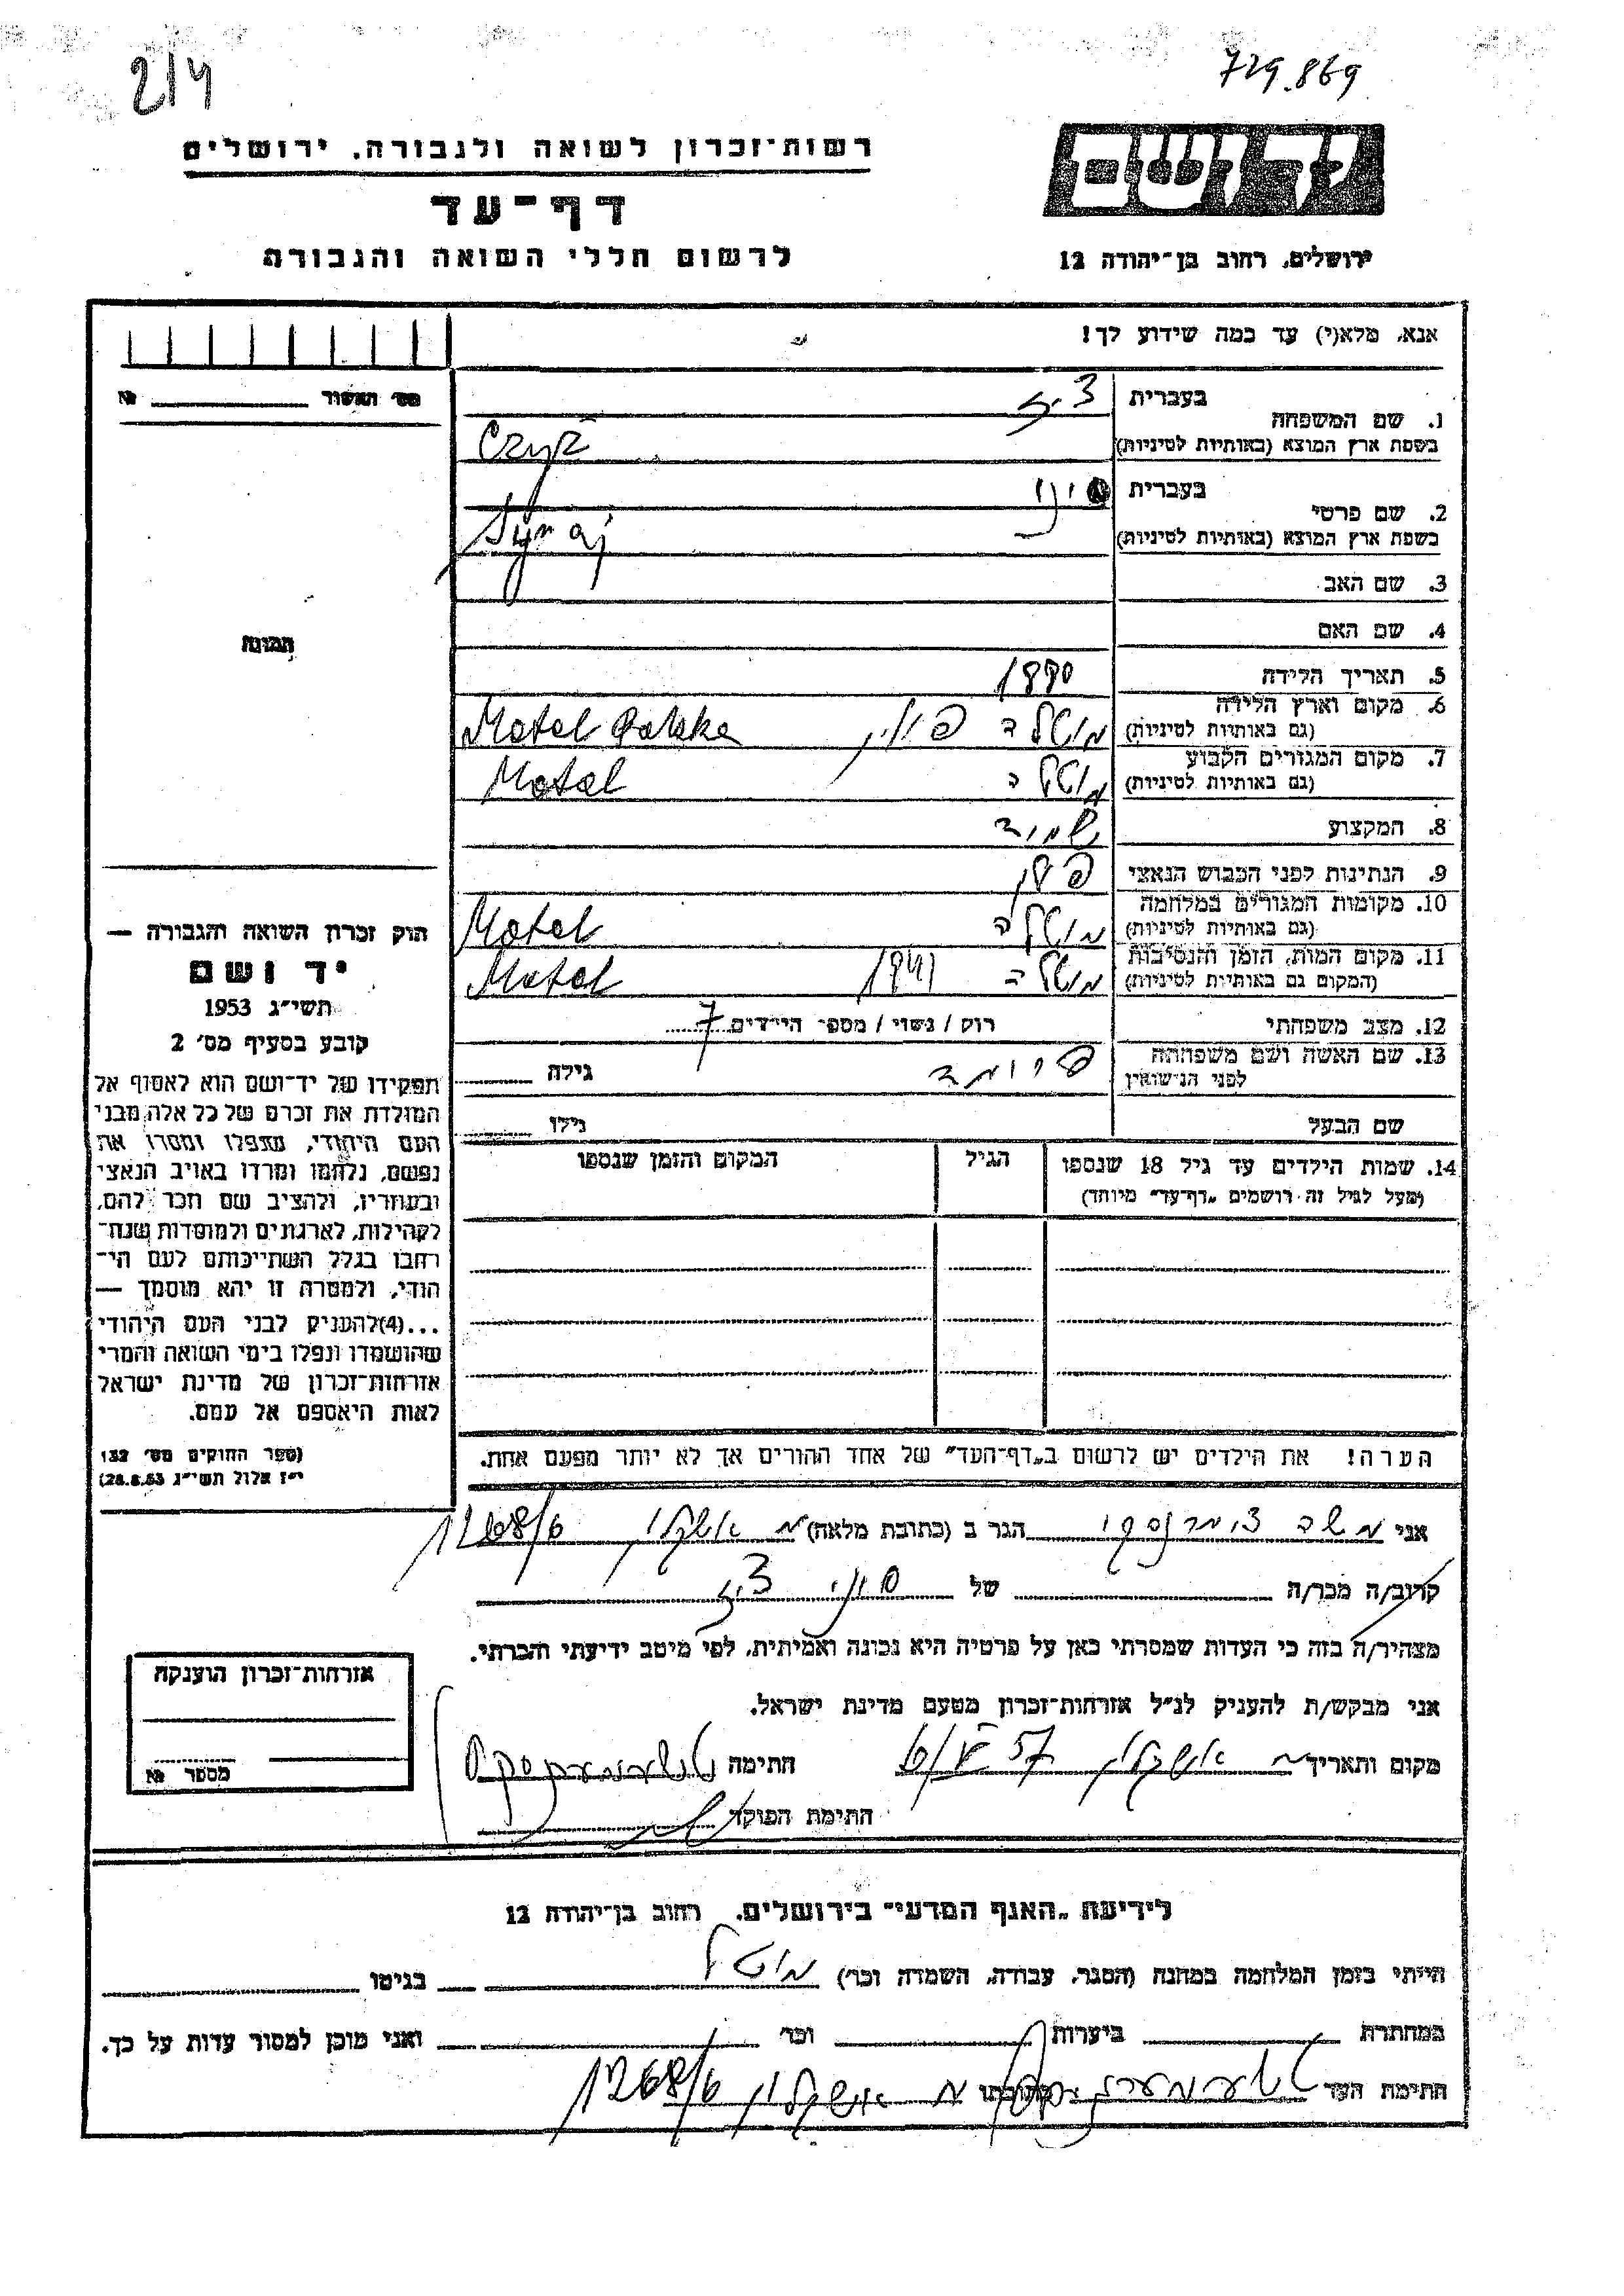 214
729.869
רשות־זכרון לשואה ולגבורה, ירושלים
דף־עד
לרשום חללי השואה והגבורה
יד ושם
ירושלים, רחוב בן־יהודה 12
אנא, מלא(י) עד כמה שידוע לך!
מס׳ האשור № ______
התמונה
חוק זכרון השואה והגבורה —
יד ושם
תשי״ג 1953
קובע בסעיף מס׳ 2
תפקידו של יד־ושם הוא לאסוף אל
המולדת את זכרם של כל אלה מבני
העם היהודי, שנפלו ומסרו את
נפשם, נלחמו ומרדו באויב הנאצי
ובעוזריו, ולהציב שם וזכר להם,
לקהילות, לארגונים ולמוסדות שנח־
רבו בגלל השתייכותם לעם הי־
הודי, ולמטרה זו יהא מוסמך —
...(4) להעניק לבני העם היהודי
שהושמדו ונפלו בימי השואה והמרי
אזרחות־זכרון של מדינת ישראל
לאות היאספם אל עמם.
(ספר החוקים מס׳ 132
י״ז אלול תשי״ג 28.8.53)
1. שם המשפחה בעברית
בשפת ארץ המוצא (באותיות לטיניות) Czyż
2. שם פרטי בעברית
בשפת ארץ המוצא (באותיות לטיניות) Synaj
3. שם האב
4. שם האם
5. תאריך הלידה 1890
6. מקום וארץ הלידה מוטלה פולין Motel Polska
(גם באותיות לטיניות)
7. מקום המגורים הקבוע מוטלה Motel
(גם באותיות לטיניות)
8. המקצוע
9. הנתינות לפני הכבוש הנאצי פולין
10. מקומות המגורים במלחמה מוטלה Motel
(גם באותיות לטיניות)
11. מקום המות, הזמן והנסיבות מוטלה 1941 Motel
(המקום גם באותיות לטיניות)
12. מצב משפחתי רווק / נשוי / מספר הילדים 7
13. שם האשה ושם משפחתה פרומה גילה
לפני הנישואין
שם הבעל גילו
14. שמות הילדים עד גיל 18 שנספו הגיל המקום והזמן שנספו
(מעל לגיל זה רושמים „דף־עד״ מיוחד)
הערה! את הילדים יש לרשום ב„דף־העד״ של אחד ההורים אך לא יותר מפעם אחת.
אני משה הגר ב (כתובת מלאה) אשקלון 1268/6
קרוב/ה מכר/ה של סיני
מצהיר/ה בזה כי העדות שמסרתי כאן על פרטיה היא נכונה ואמיתית, לפי מיטב ידיעתי והכרתי.
אני מבקש/ת להעניק לנ״ל אזרחות־זכרון מטעם מדינת ישראל.
מקום ותאריך אשקלון חתימה
חתימת הפוקד
אזרחות־זכרון הוענקה
מספר №
לידיעת „האגף המדעי״ בירושלים, רחוב בן־יהודה 12
הייתי בזמן המלחמה במחנה (הסגר, עבודה, השמדה וכו׳) מוטל בגיטו
במחתרת ביערות וכו׳ ואני מוכן למסור עדות על כך.
חתימת העד כתובתו אשקלון 1268/6